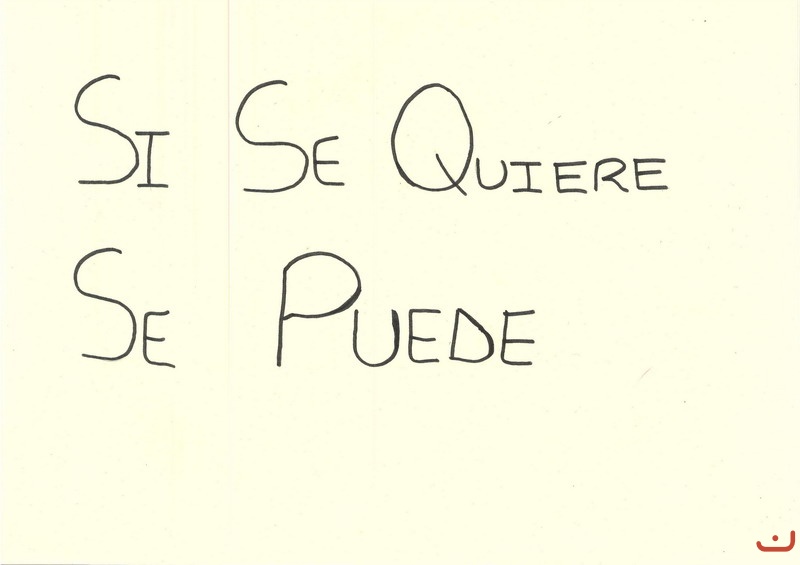 SI SE QUIERE
SE PUEDE